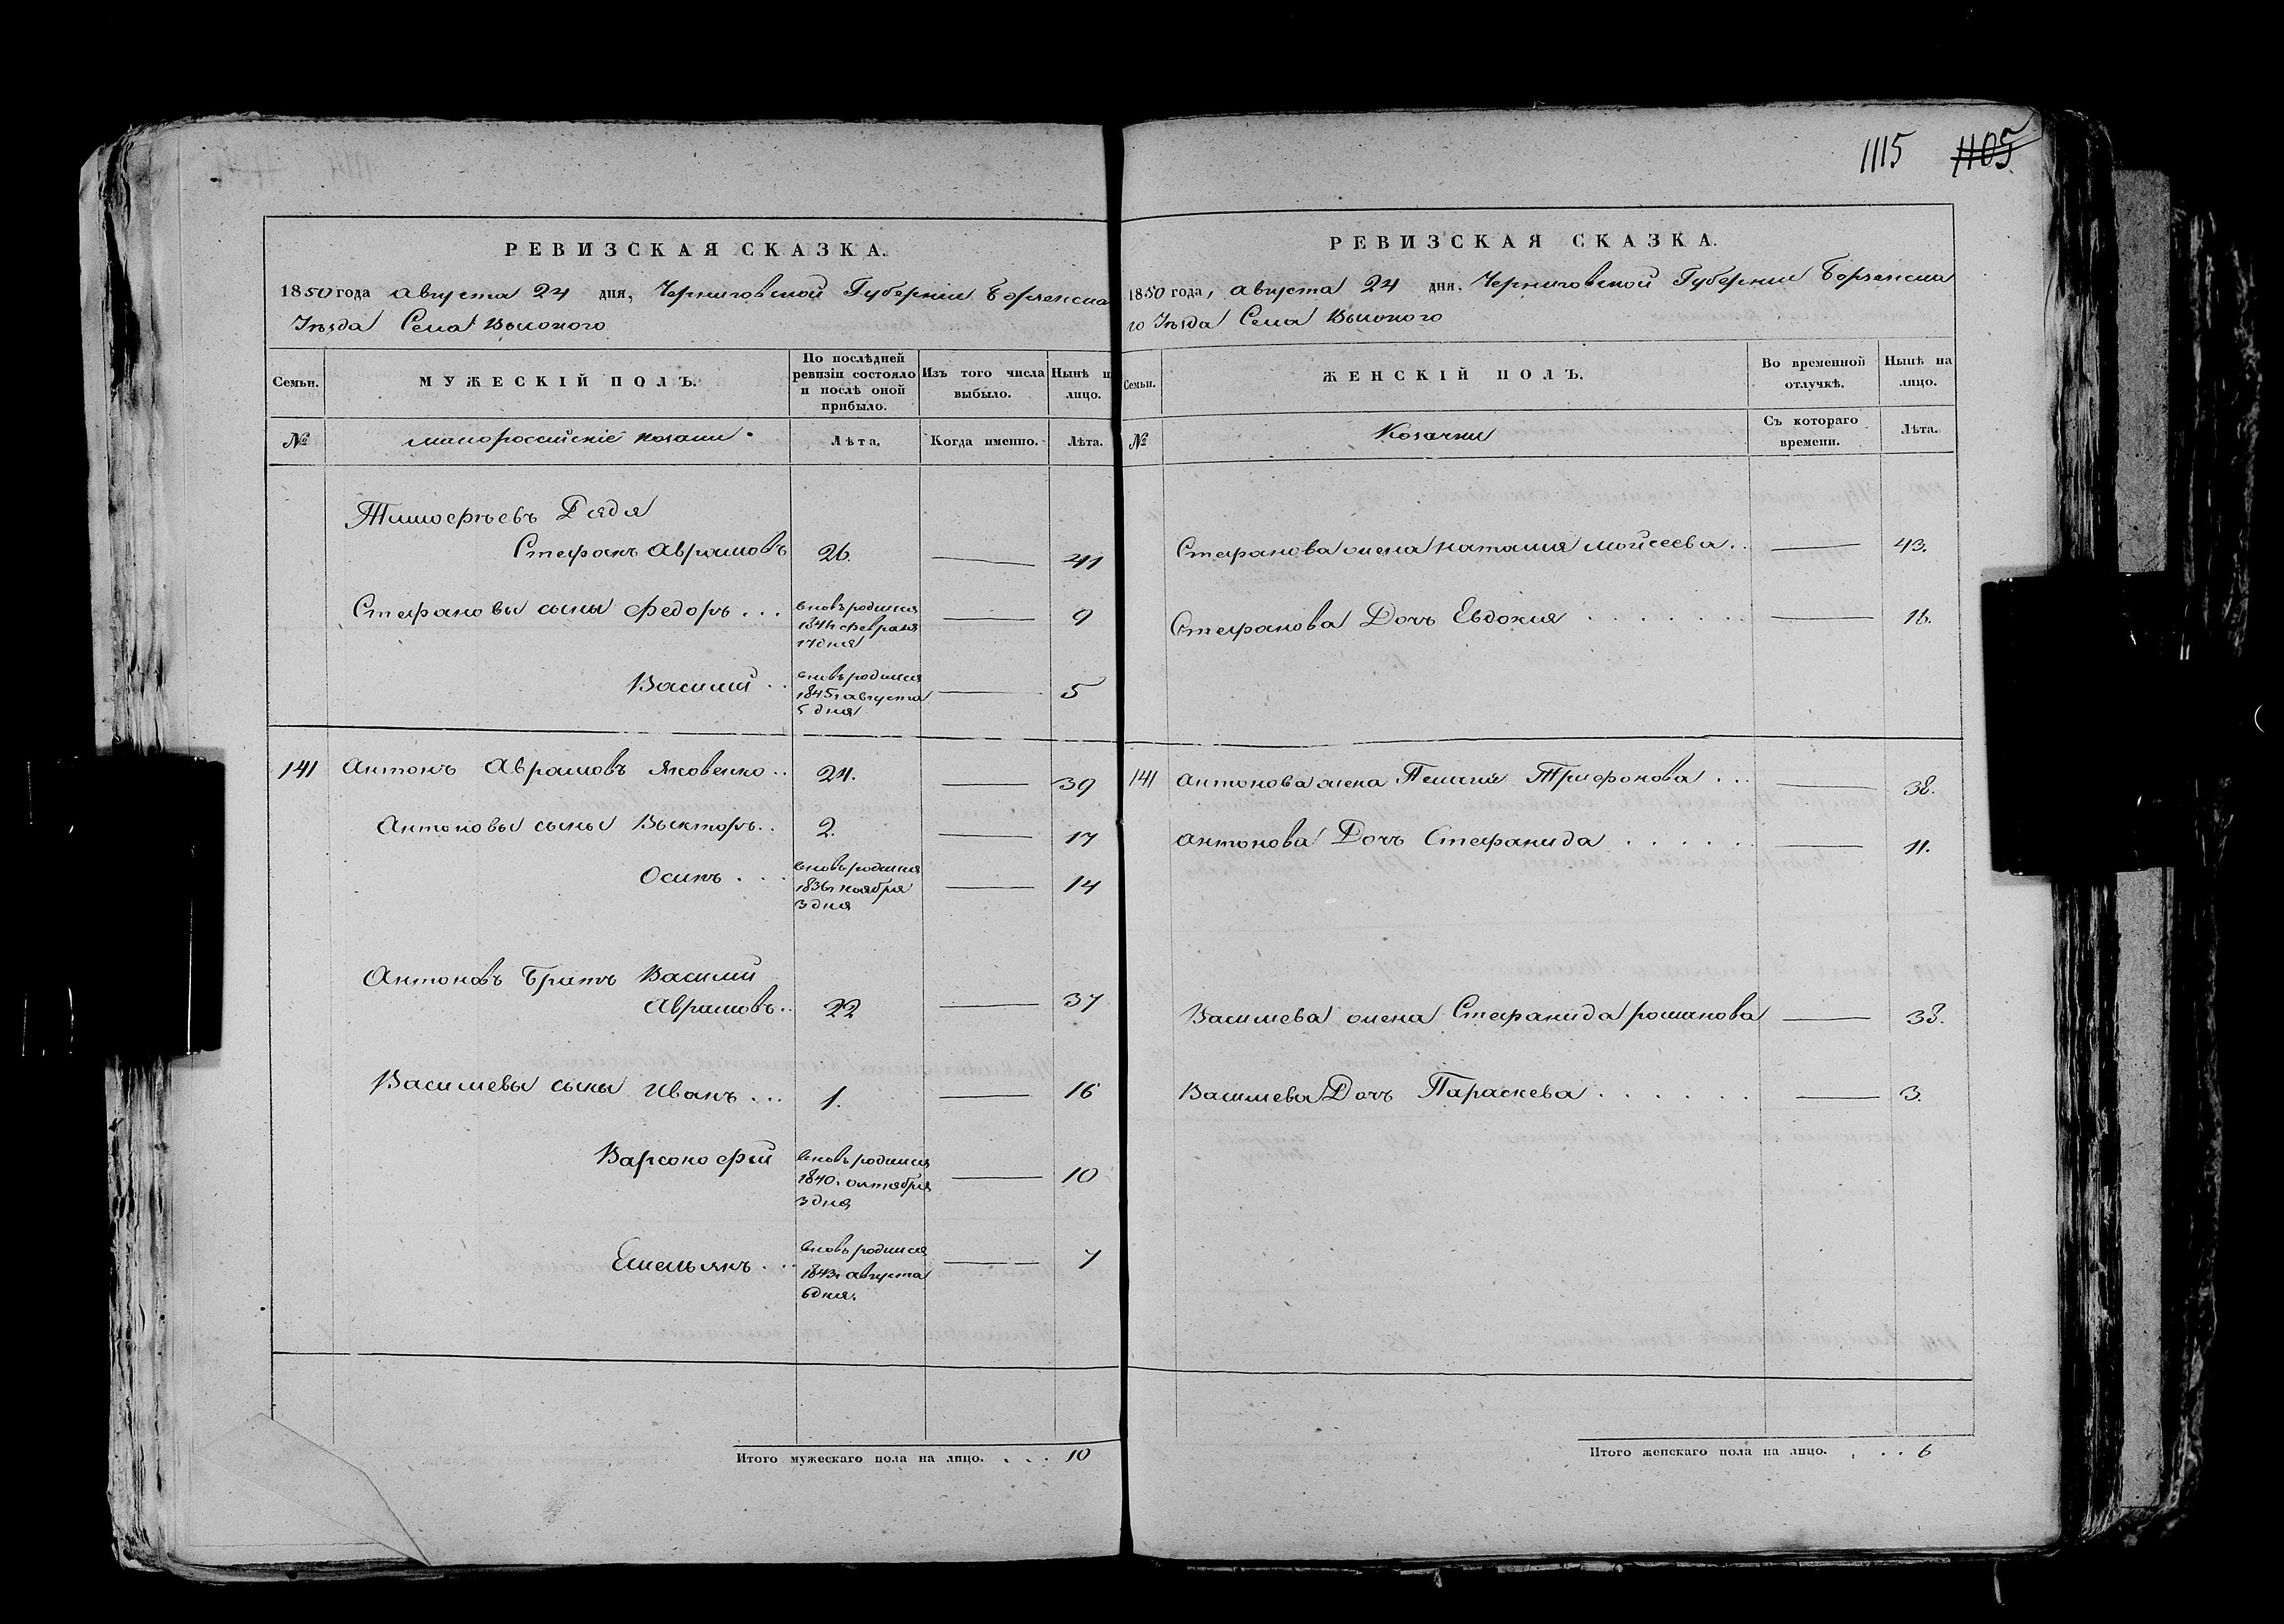 1115 1105
РЕВИЗСКАЯ СКАЗКА.
1850 года августа 24 дня, Черниговской Губерніи Борзенска
Уѣзда Села Высокого
Семьи.
МУЖЕСКІЙ ПОЛЪ.
По послѣдней ревизіи состояло и послѣ оной прибыло.
Изъ того числа выбыло.
Нынѣ н лицо.
№
малороссійскіе козаки.
Лѣта.
Когда именно.
Лѣта.
Тимофѣевъ Дядя
Стефанъ Аврамовъ 26. 41
Стефановы сыны Федоръ ... вновь родился 1841 февраля 17 дня 9
Василій .. вновь родился 1845 августа 5 дня 5
141 Антонъ Аврамовъ Яковенко .. 24. 39
Антоновы сыны Выкторъ .. 2. 17
Осипъ ... вновь родился 1836 ноября 3 дня 14
Антоновъ Братъ Василий
Аврамовъ .. 22 37
Василіевы сыны Иванъ ... 1. 16
Варсонофий вновь родился 1840. октября 3 дня 10
Емельянъ .. вновь родился 1843 августа 6 дня. 7
Итого мужескаго пола на лицо. . . . 10
РЕВИЗСКАЯ СКАЗКА.
1850 года, августа 24 дня. Черниговской Губернии Борзенска
го Уѣзда Села Высокого
Семьи.
ЖЕНСКІЙ ПОЛЪ.
Во временной отлучкѣ.
Нынѣ на лицо.
№
Козачки
Съ котораго времени.
Лѣта.
Стефанова жена Наталия Мойсеева .. 43.
Стефанова Дочъ Евдокия . . . . . . 18.
141 Антонова жена Пелагия Трифонова ... 38.
Антонова Дочъ Стефанида . . . . . . 11.
Василиева жена Стефанида Романова 38.
Василиева Дочъ Параскева . . . . . . 3.
Итого женскаго пола на лицо. . . . 6